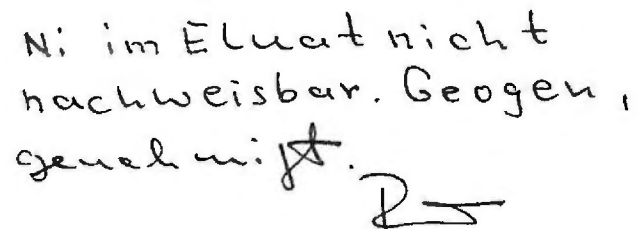 Ni im Eluat nicht
nachweisbar. Geogen,
genehmigt.